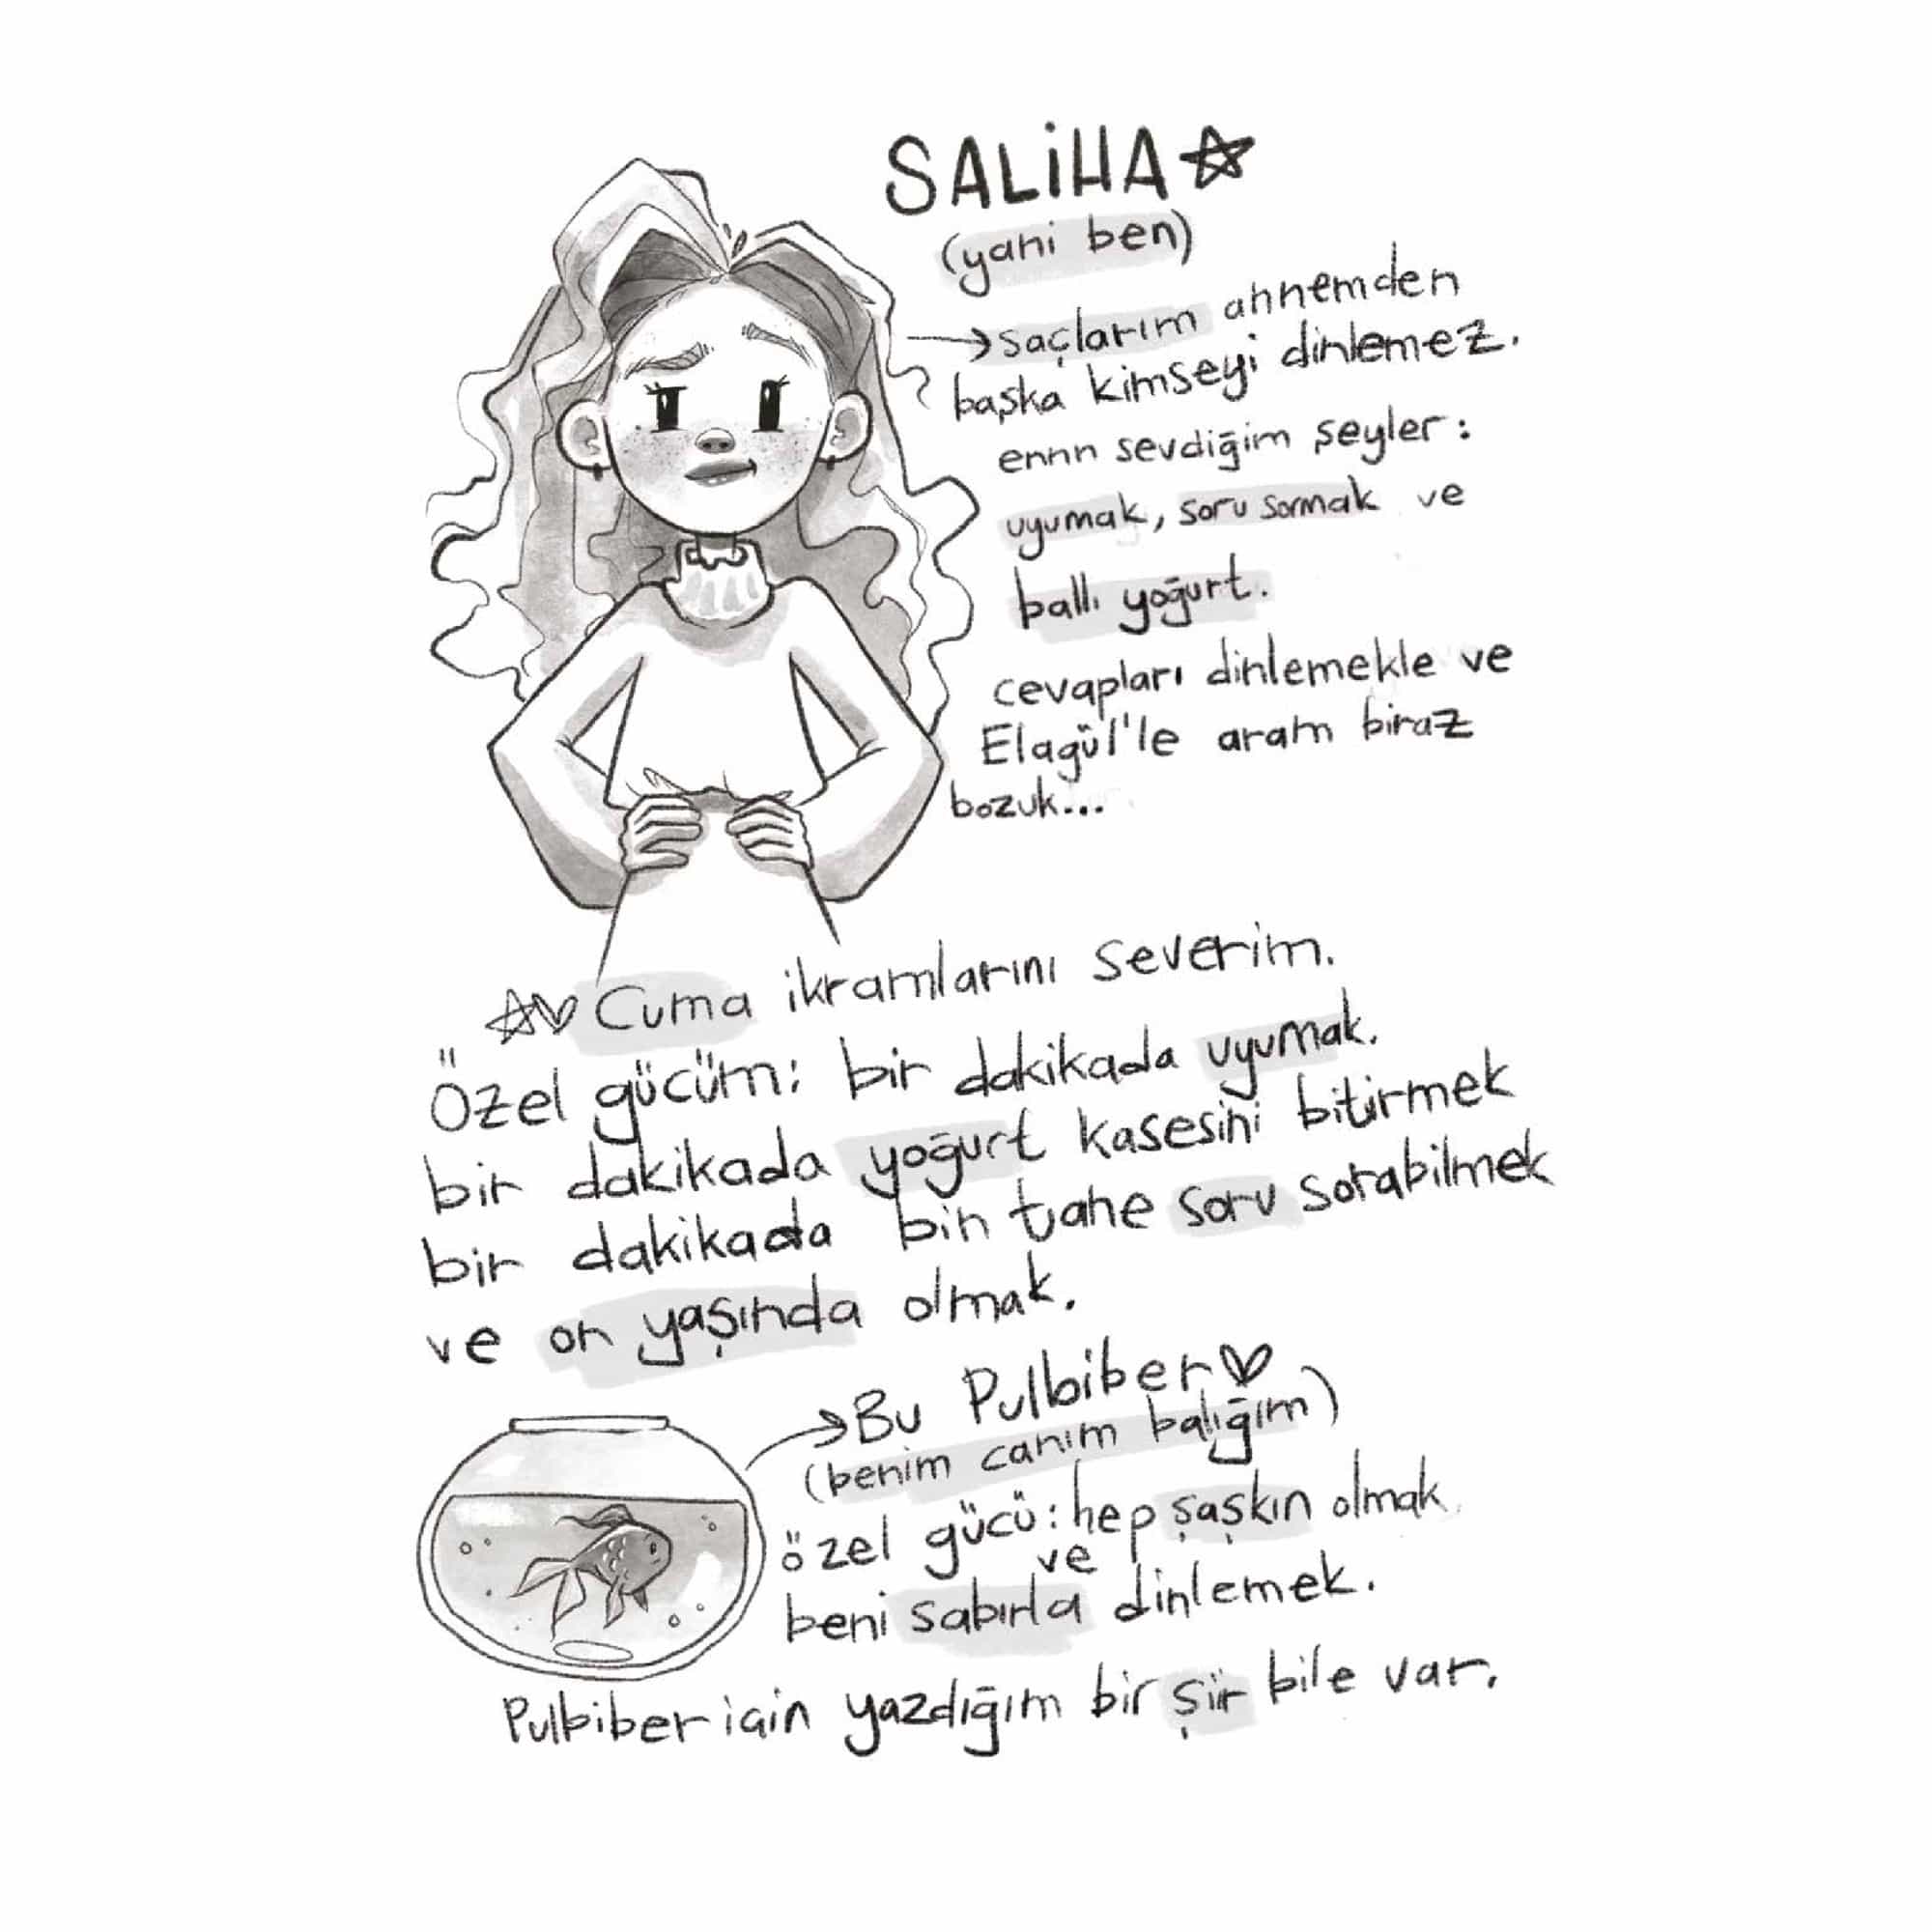 SALİHA
(yani ben)
saçlarım annemden
başka kimseyi dinlemez.
ennn sevdiğim şeyler:
uyumak, soru sormak ve
ballı yoğurt.
cevapları dinlemekle ve
Elagül'le aram biraz
bozuk...
Cuma ikramlarını severim.
Özel gücüm: bir dakikada uyumak.
bir dakikada yoğurt kasesini bitirmek
bir dakikada bin tane soru sorabilmek
ve on yaşında olmak.
Bu Pulbiber
(benim canım balığım)
özel gücü: hep şaşkın olmak
ve
beni sabırla dinlemek.
Pulbiber için yazdığım bir şiir bile var.